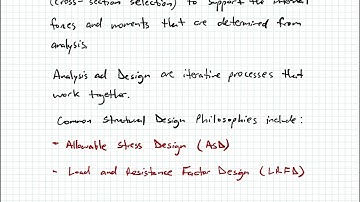 (cross-section selection) to support the internal
forces and moments that are determined from
analysis.
Analysis ad Design are iterative processes that
work together.
Common Structural Design Philosophies include:
- Allowable Stress Design (ASD)
- Load and Resistance Factor Design (LRFD)